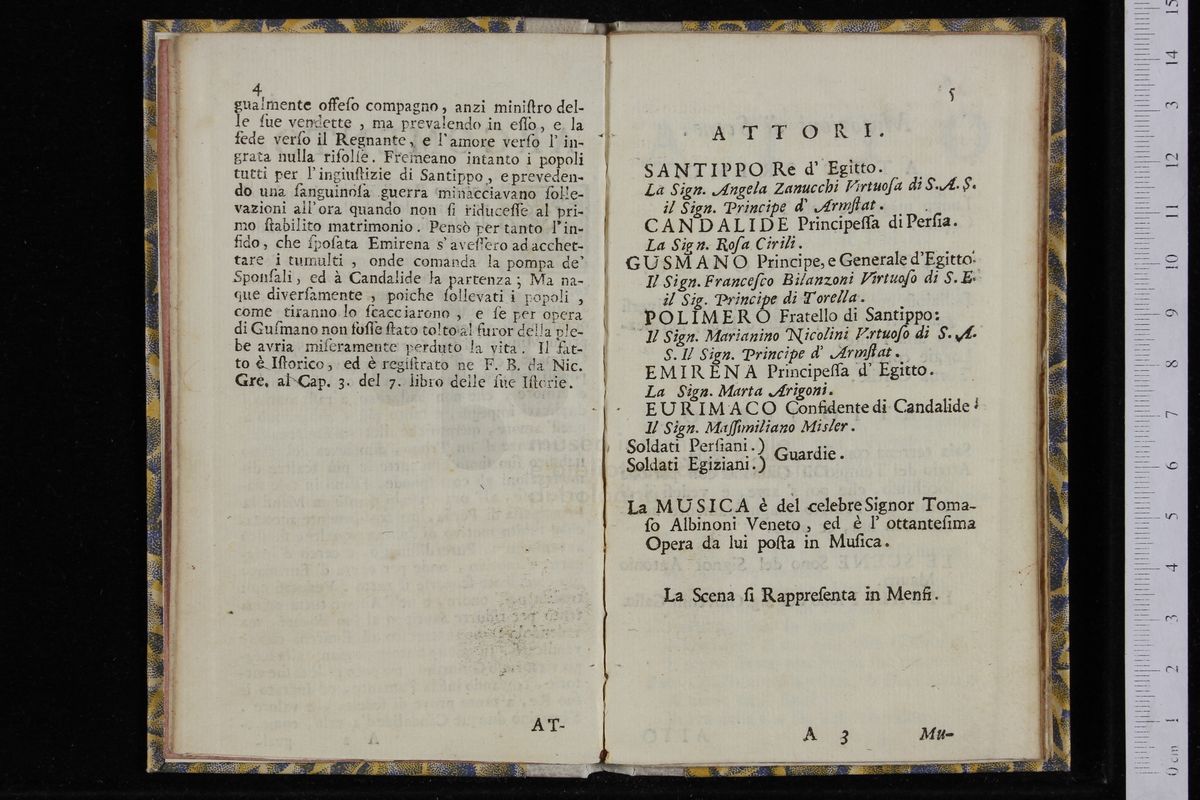 4
gualmente offeſo compagno, anzi miniſtro del-
le ſue vendette , ma prevalendo in eſſo, e la
fede verſo il Regnante, e l'amore verſo l' in-
grata nulla riſolſe. Fremeano intanto i popoli
tutti per l'ingiuſtizie di Santippo, e preveden-
do una ſanguinoſa guerra minacciavano ſolle-
vazioni all'ora quando non ſi riduceſſe al pri-
mo ſtabilito matrimonio. Pensò per tanto l'in-
fido, che ſpoſata Emirena s'aveſſero ad acchet-
tare i tumulti , onde comanda la pompa de'
Sponſali, ed à Candalide la partenza; Ma na-
que diverſamente , poiche ſollevati i popoli ,
come tiranno lo ſcacciarono , e ſe per opera
di Guſmano non foſſe ſtato tolto al furor della ple-
be avria miſeramente perduto la vita . Il fat-
to è Iſtorico, ed è regiſtrato ne F. B. da Nic.
Gre, al Cap. 3. del 7. libro delle ſue Iſtorie.
AT-
5
ATTORI.
SANTIPPO Re d' Egitto.
La Sign. Angela Zanucchi Virtuoſa di S.A.S.
il Sign. Principe d' Armſtat.
CANDALIDE Principeſſa di Perſia.
La Sign. Roſa Cirili.
GUSMANO Principe, e Generale d'Egitto.
Il Sign. Franceſco Bilanzoni Virtuoſo di S. E.
il Sig. Principe di Torella.
POLIMERO Fratello di Santippo:
Il Sign. Marianino Nicolini Vrtuoſo di S. A.
S. Il Sign. Principe d' Armſtat.
EMIRENA Principeſſa d' Egitto.
La Sign. Marta Arigoni.
EURIMACO Confidente di Candalide
Il Sign. Maſſimiliano Misler.
Soldati Perſiani.) Guardie.
Soldati Egiziani.)
La MUSICA è del celebre Signor Toma-
ſo Albinoni Veneto , ed è l' ottanteſima
Opera da lui poſta in Muſica.
La Scena ſi Rappreſenta in Menfi.
A 3 Mu-
0 cm 1 2 3 4 5 6 7 8 9 10 11 12 3 14 15